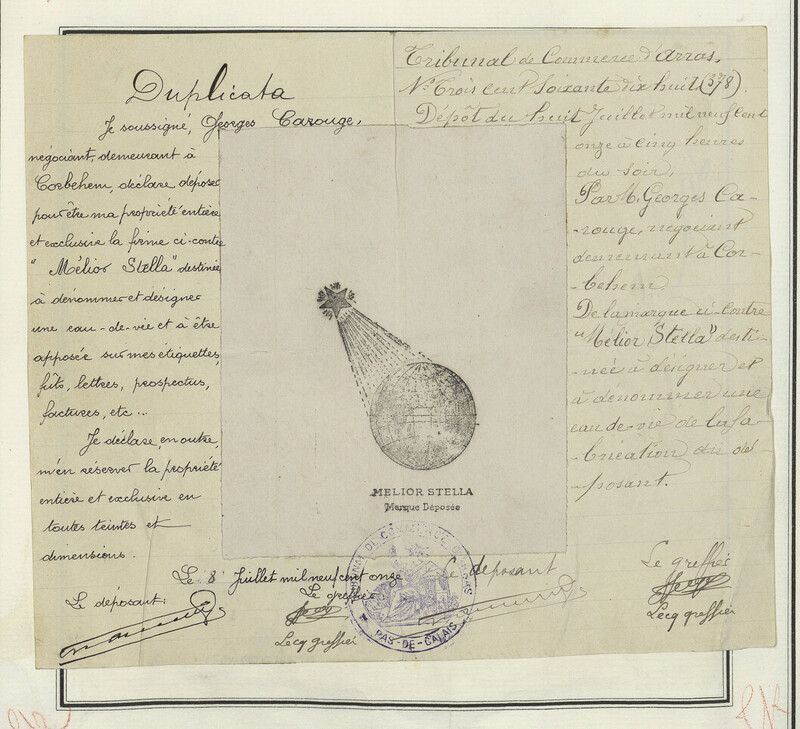 Duplicata
Je soussigné, Georges Carouge,
négociant, demeurant à
Corbehem, déclare déposer
pour être ma propriété entière
et exclusive la firme ci-contre
"Mélior Stella" destinée
à dénommer et désigner
une eau-de-vie et à être
apposée sur mes étiquettes,
fûts, lettres, prospectus,
factures, etc...
Je déclare, en outre,
m'en réserver la propriété
entière et exclusive en
toutes teintes et
dimensions.
Le 8 Juillet mil neuf cent onze
Le déposant:
Le greffier
Lecq greffier
MELIOR STELLA
Marque Déposée
TRIBUNAL DE COMMERCE D'ARRAS
PAS-DE-CALAIS
Tribunal de Commerce d'Arras,
No Trois cent soixante dix huit (378).
Dépôt du huit Juillet mil neuf cent
onze à cinq heures
du soir,
Par M. Georges Ca-
-rouge, négociant
demeurant à Cor-
-behem
De la marque ci-contre
"Mélior Stella" desti-
-née à désigner et
à dénommer une
eau de-vie de la fa-
-brication du dé-
-posant.
Le déposant
Le greffier
Lecq greffier